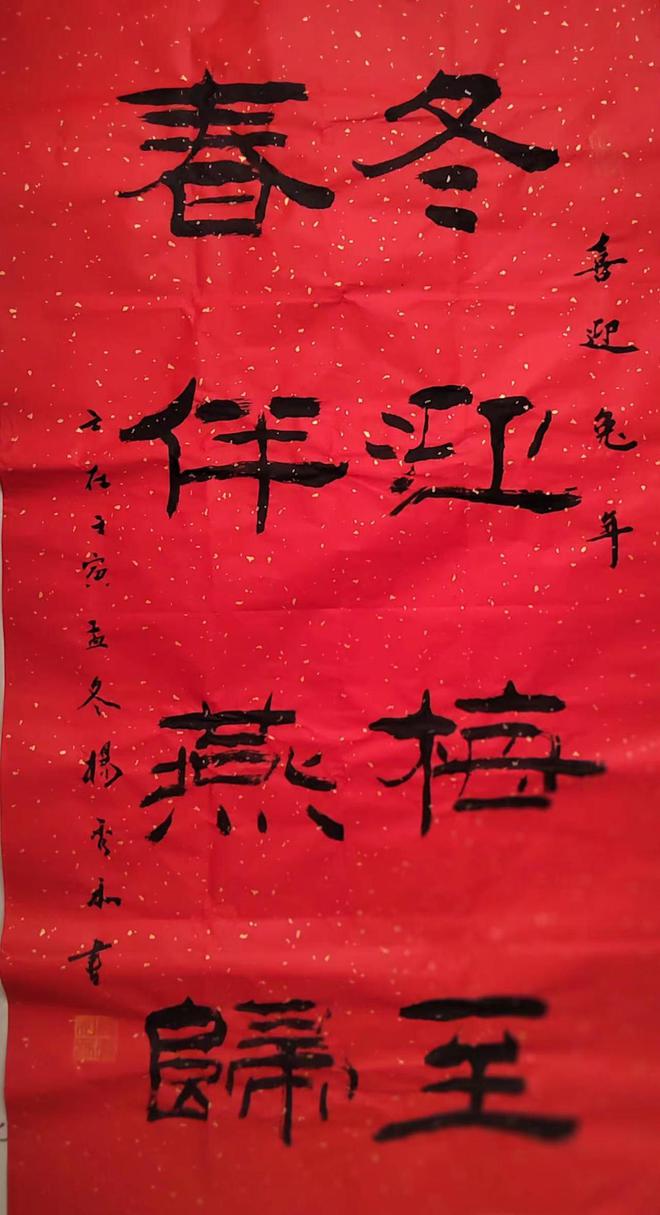 喜迎兔年
冬迎梅至
春伴燕歸
岁在壬寅孟冬楊秀和書